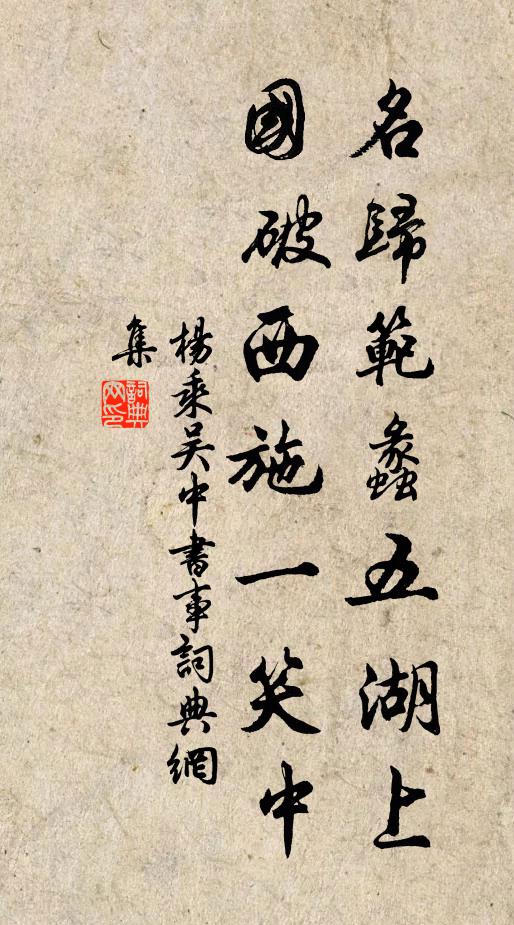 名歸範蠡五湖上
國破西施一笑中
楊乘吳中書事詞典網
集
詞典
网印